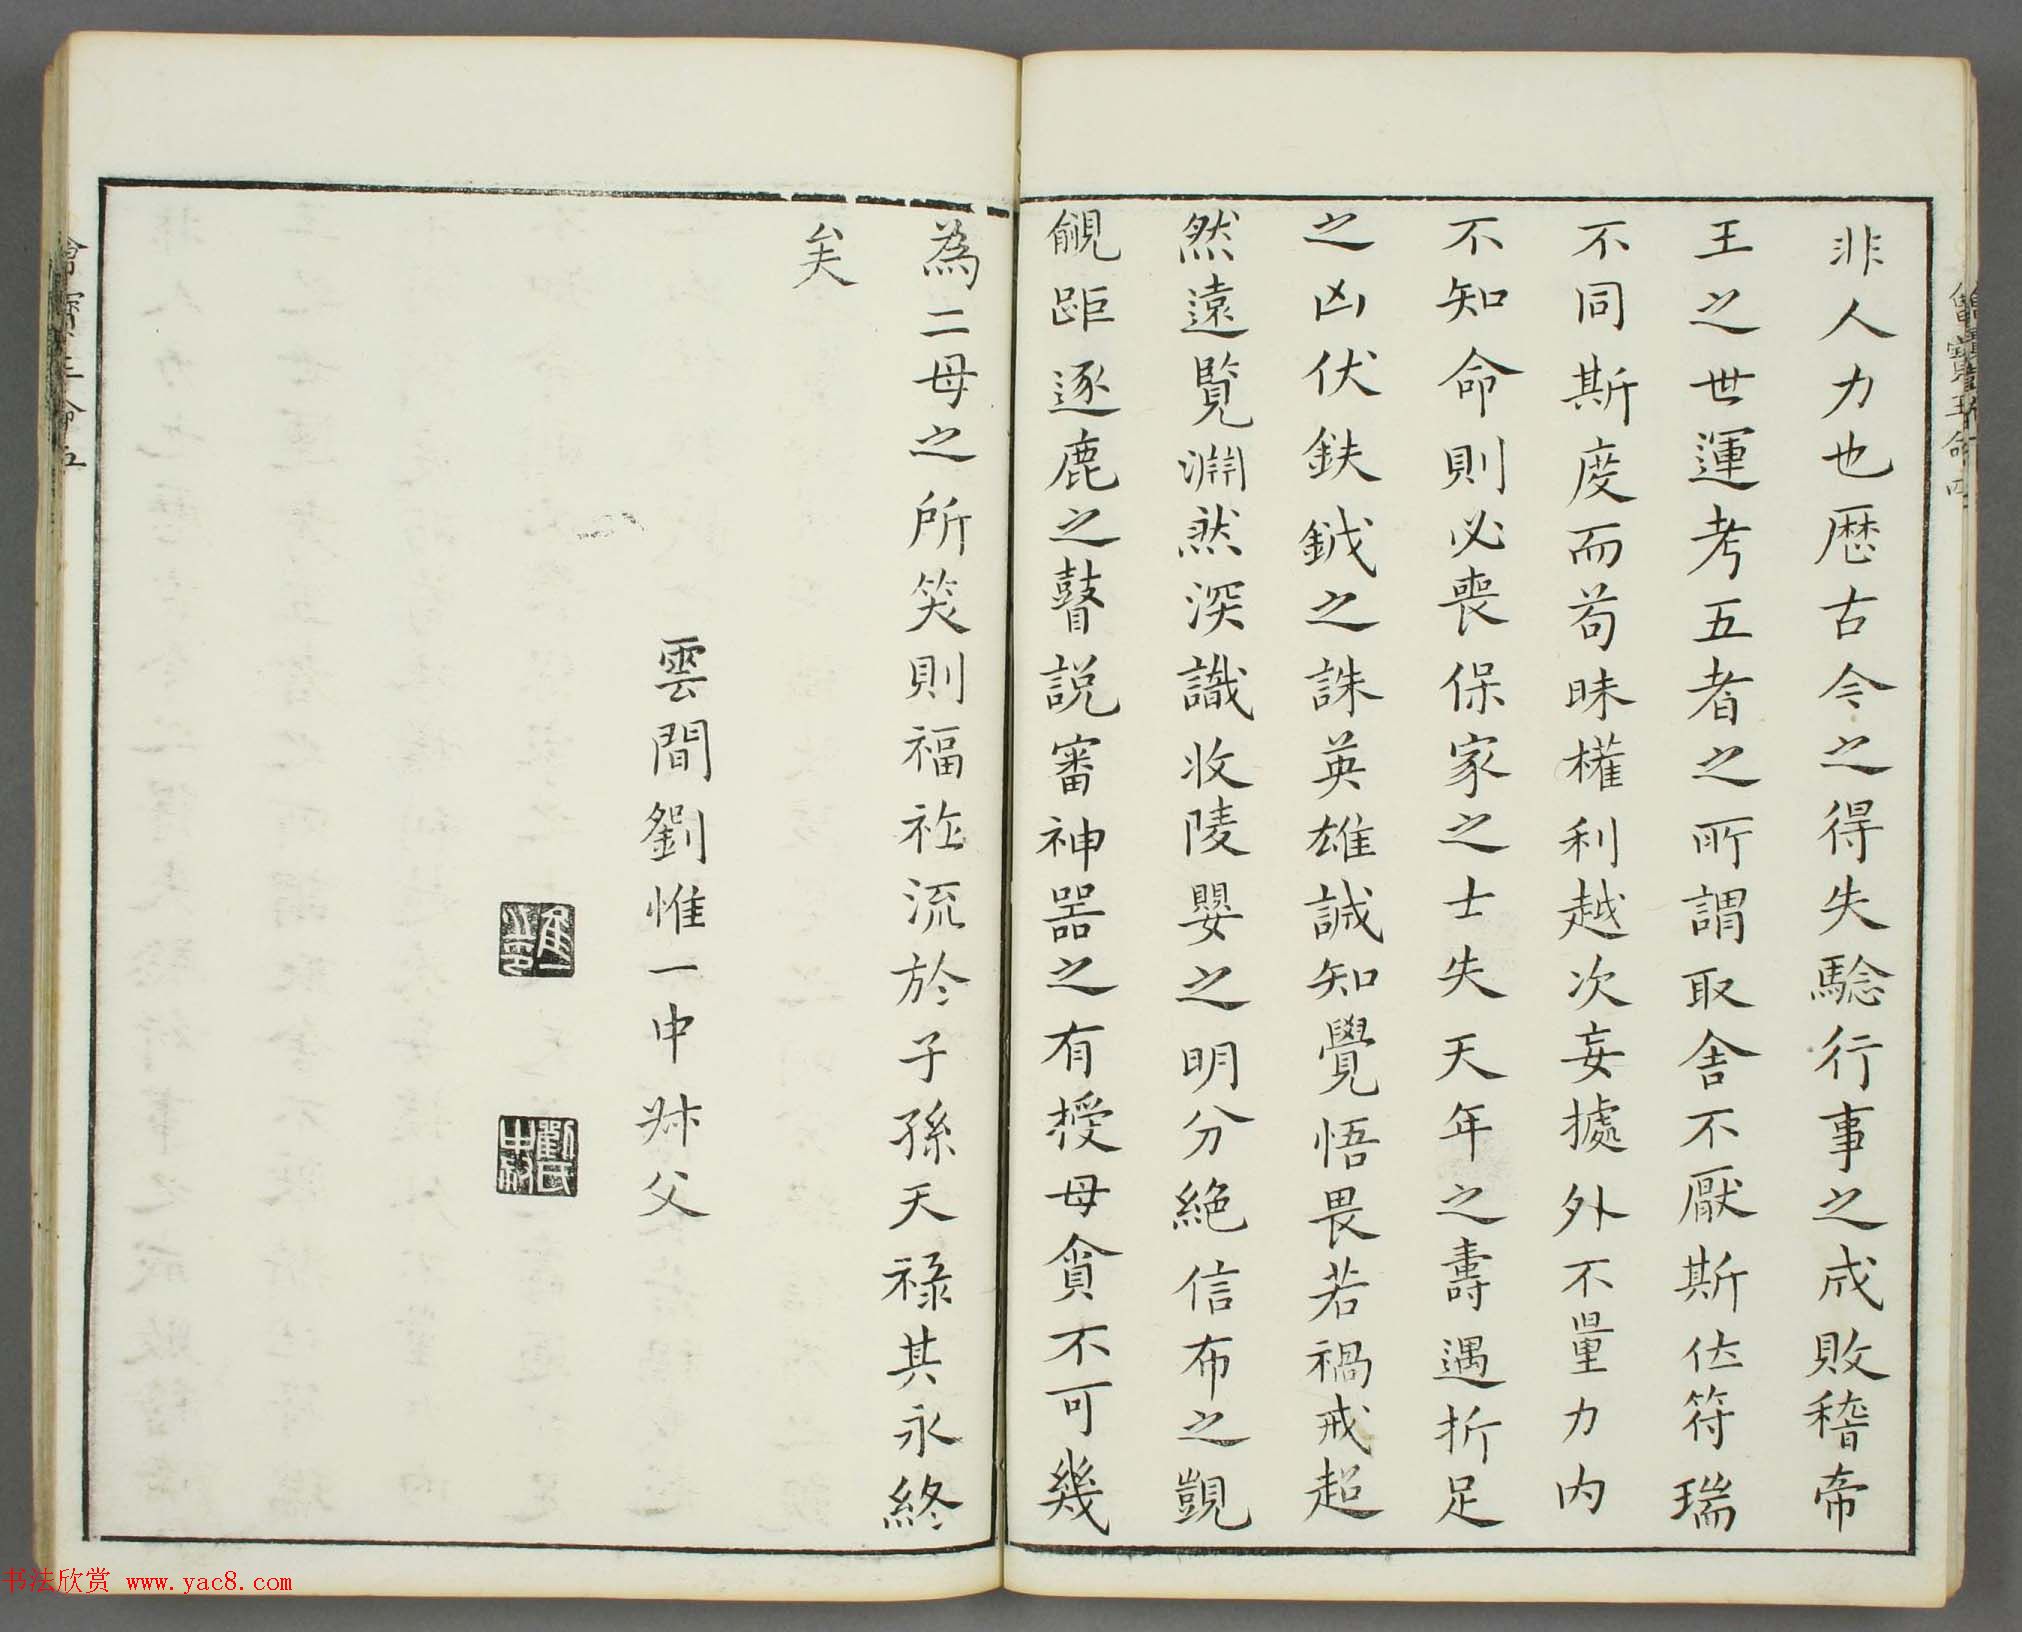 非人力也歷古今之得失驗行事之成敗稽帝
王之世運考五者之所謂取舍不厭斯位符瑞
不同斯度而苟昧權利越次妄據外不量力內
不知命則必喪保家之士失天年之壽遇折足
之凶伏鈇鉞之誅英雄誠知覺悟畏若禍戒超
然遠覽淵然深識收陵嬰之明分絕信布之覬
覦距逐鹿之瞽說審神器之有授毋貪不可幾
為二母之所笑則福祚流於子孫天祿其永終
矣
雲間劉惟一中尗父
惟一之印
劉氏中尗
书法欣赏 www.yac8.com